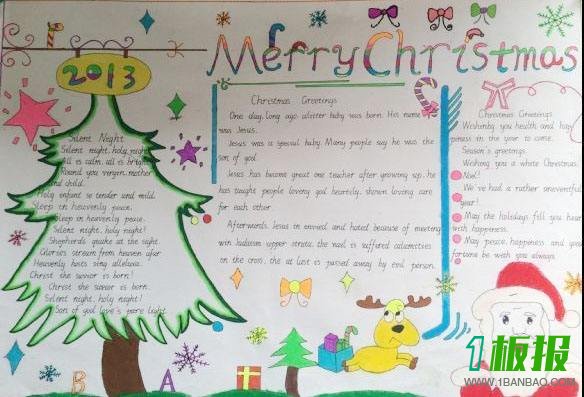 Merry Christmas
2013
Silent Night
Silent night, holy night!
All is calm, all is bright
Round you vergin mother
and child.
Holy infant so tender and mild.
Sleep in heavenly peace.
Sleep in heavenly peace.
Silent night, holy night!
Shepherds quake at the sight
Glories stream from heaven afar
Heavenly hosts sing alleluia.
Christ the savior is born!
Christ the savior is born.
Silent night, holy night!
Son of god love's pure light
Christmas Greetings
One day, long ago, alister baby was born. His name
was Jesus.
Jesus was a special baby. Many people say he was the
son of god.
Jesus has become great one teacher after growing up, he
has taught people loveng god heartely, shown loving care
for each other.
Afterwards Jesus is envied and hated because of meeting
win Judaism upper strata, the nael is suffered calamities
on the cross, the at last is passed away by evil person.
Christmas Greetings
Wishenby you health and hap
piness in the year to come.
Season's greetings.
Wishong you a white Christmas
Noel!
We've had a rather uneventful
year!
May the holidays fill you hear
with happeness.
May peace, happeness and you
fortune be with you always.
B A T
1板报
WWW.1BANBAO.COM